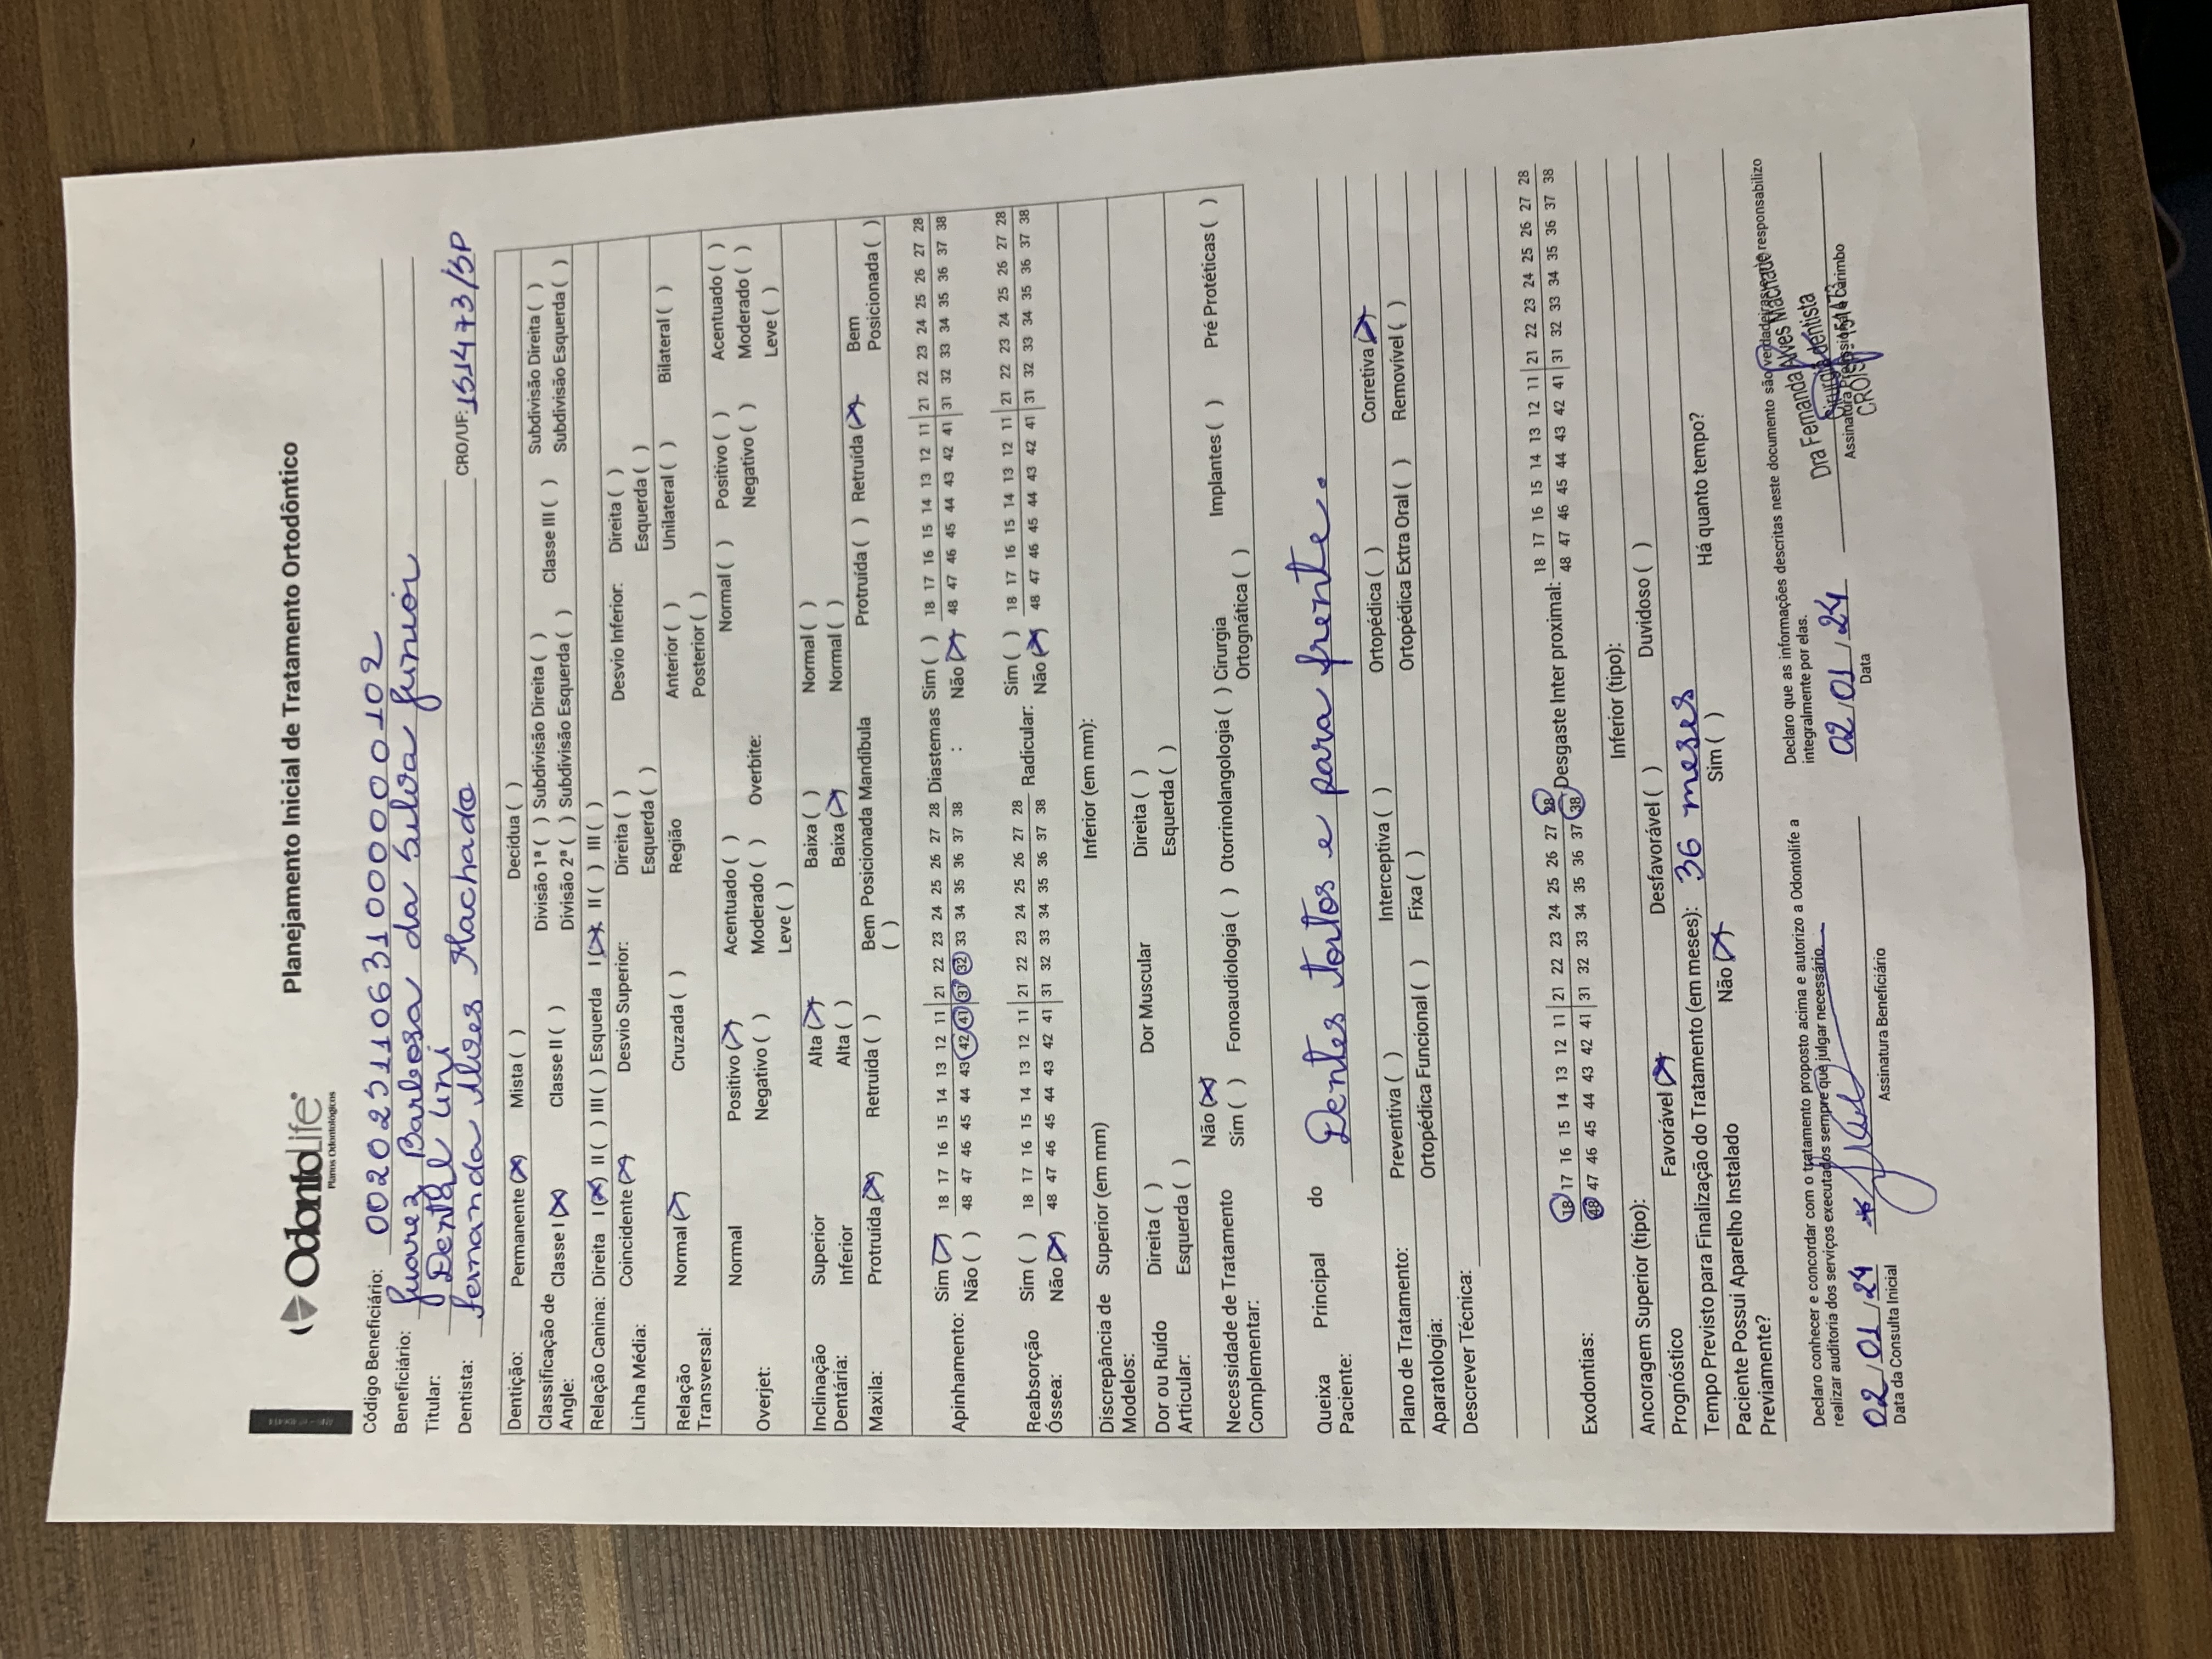 OdontoLife®
Planos Odontológicos
Planejamento Inicial de Tratamento Ortodôntico
Código Beneficiário: 00202511063100000102
Beneficiário: Juarez Barbosa da Silva Junior
Titular: Dental Uni
Dentista: Fernanda Alves Machado CRO/UF: 151473/SP
Dentição: Permanente (X) Mista ( ) Decídua ( )
Classificação de Angle: Classe I (X) Classe II ( ) Divisão 1ª ( ) Subdivisão Direita ( ) Classe III ( ) Subdivisão Direita ( )
Divisão 2ª ( ) Subdivisão Esquerda ( ) Subdivisão Esquerda ( )
Relação Canina: Direita I (X) II ( ) III ( ) Esquerda I (X) II ( ) III ( )
Linha Média: Coincidente (X) Desvio Superior: Direita ( ) Desvio Inferior: Direita ( )
Esquerda ( ) Esquerda ( )
Relação Transversal: Normal (X) Cruzada ( ) Região Anterior ( ) Unilateral ( ) Bilateral ( )
Posterior ( )
Overjet: Normal Positivo (X) Acentuado ( ) Overbite: Normal ( ) Positivo ( ) Acentuado ( )
Negativo ( ) Moderado ( ) Negativo ( ) Moderado ( )
Leve ( ) Leve ( )
Inclinação Dentária: Superior Alta (X) Baixa ( ) Normal ( )
Inferior Alta ( ) Baixa (X) Normal ( )
Maxila: Protruída (X) Retruída ( ) Bem Posicionada ( ) Mandíbula Protruída ( ) Retruída (X) Bem Posicionada ( )
Apinhamento: Sim (X) 18 17 16 15 14 13 12 11 | 21 22 23 24 25 26 27 28 Diastemas : Sim ( ) 18 17 16 15 14 13 12 11 | 21 22 23 24 25 26 27 28
Não ( ) 48 47 46 45 44 43 42 41 | 31 32 33 34 35 36 37 38 Não (X) 48 47 46 45 44 43 42 41 | 31 32 33 34 35 36 37 38
Reabsorção Óssea: Sim ( ) 18 17 16 15 14 13 12 11 | 21 22 23 24 25 26 27 28 Radicular: Sim ( ) 18 17 16 15 14 13 12 11 | 21 22 23 24 25 26 27 28
Não (X) 48 47 46 45 44 43 42 41 | 31 32 33 34 35 36 37 38 Não (X) 48 47 46 45 44 43 42 41 | 31 32 33 34 35 36 37 38
Discrepância de Modelos: Superior (em mm) Inferior (em mm):
Dor ou Ruído Articular: Direita ( ) Dor Muscular Direita ( )
Esquerda ( ) Esquerda ( )
Necessidade de Tratamento Complementar: Não (X)
Sim ( ) Fonoaudiologia ( ) Otorrinolangologia ( ) Cirurgia Ortognática ( ) Implantes ( ) Pré Protéticas ( )
Queixa Principal do Paciente: Dentes tortos e para frente.
Plano de Tratamento: Preventiva ( ) Interceptiva ( ) Ortopédica ( ) Corretiva (X)
Aparatologia: Ortopédica Funcional ( ) Fixa ( ) Ortopédica Extra Oral ( ) Removível ( )
Descrever Técnica:
Exodontias: 18 17 16 15 14 13 12 11 | 21 22 23 24 25 26 27 28 Desgaste Inter proximal: 18 17 16 15 14 13 12 11 | 21 22 23 24 25 26 27 28
48 47 46 45 44 43 42 41 | 31 32 33 34 35 36 37 38 48 47 46 45 44 43 42 41 | 31 32 33 34 35 36 37 38
Ancoragem Superior (tipo): Inferior (tipo):
Prognóstico Favorável (X) Desfavorável ( ) Duvidoso ( )
Tempo Previsto para Finalização do Tratamento (em meses): 36 meses
Paciente Possui Aparelho Instalado Previamente? Não (X) Sim ( ) Há quanto tempo?
Declaro conhecer e concordar com o tratamento proposto acima e autorizo a Odontolife a
realizar auditoria dos serviços executados sempre que julgar necessário.
Declaro que as informações descritas neste documento são verdadeiras e me responsabilizo
integralmente por elas.
02/01/24
Data da Consulta Inicial
Assinatura Beneficiário
02/01/24
Data
Dra Fernanda Alves Machado
Cirurgiã dentista
CROSP 151473
Assinatura Profissional e Carimbo